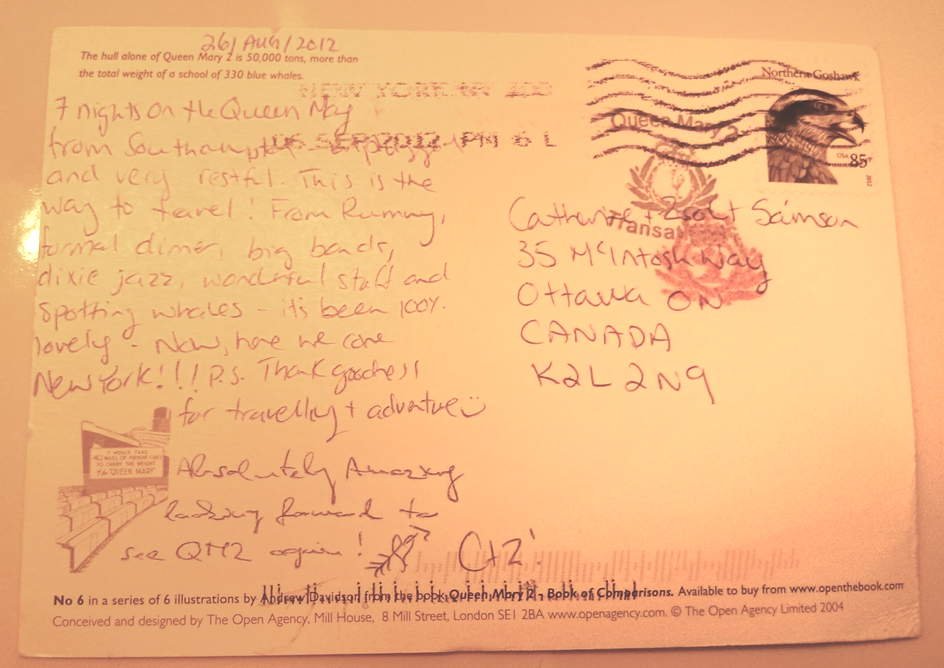 26/AUG/2012
The hull alone of Queen Mary 2 is 50,000 tons, more than
the total weight of a school of 330 blue whales.
7 nights on the Queen May
from Southampton
and very restful. This is the
way to travel! From Rummy,
formal dinner, big bands,
dixie jazz, wonderful staff and
spotting whales - it's been 100%
lovely - Now, here we come
New York!!! P.S. Thank goodness
for travelling + adventure
Absolutely Amazing
looking forward to
see QM2 again!
C+Z!
IT WOULD TAKE
TO CARRY THE WEIGHT
"QUEEN MARY"
NEW YORK NY 100
06 SEP 2012 PM 6 L
Northern Goshawk
USA 85
2012
Queen Mary 2
Transat
Catharine + Zsolt Sámson
35 McIntosh Way
Ottawa ON
CANADA
K2L 2N9
No 6 in a series of 6 illustrations by Andrew Davidson from the book Queen Mary 2 - Book of Comparisons. Available to buy from www.openthebook.com
Conceived and designed by The Open Agency, Mill House, 8 Mill Street, London SE1 2BA www.openagency.com. © The Open Agency Limited 2004